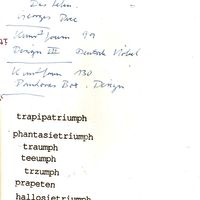 Georges
Kunstforum 99
Design III Deutsche Möbel
Kunstforum 130
Design
trapipatriumph
phantasietriumph
traumph
teeumph
trzumph
prapeten
hallosietriumph